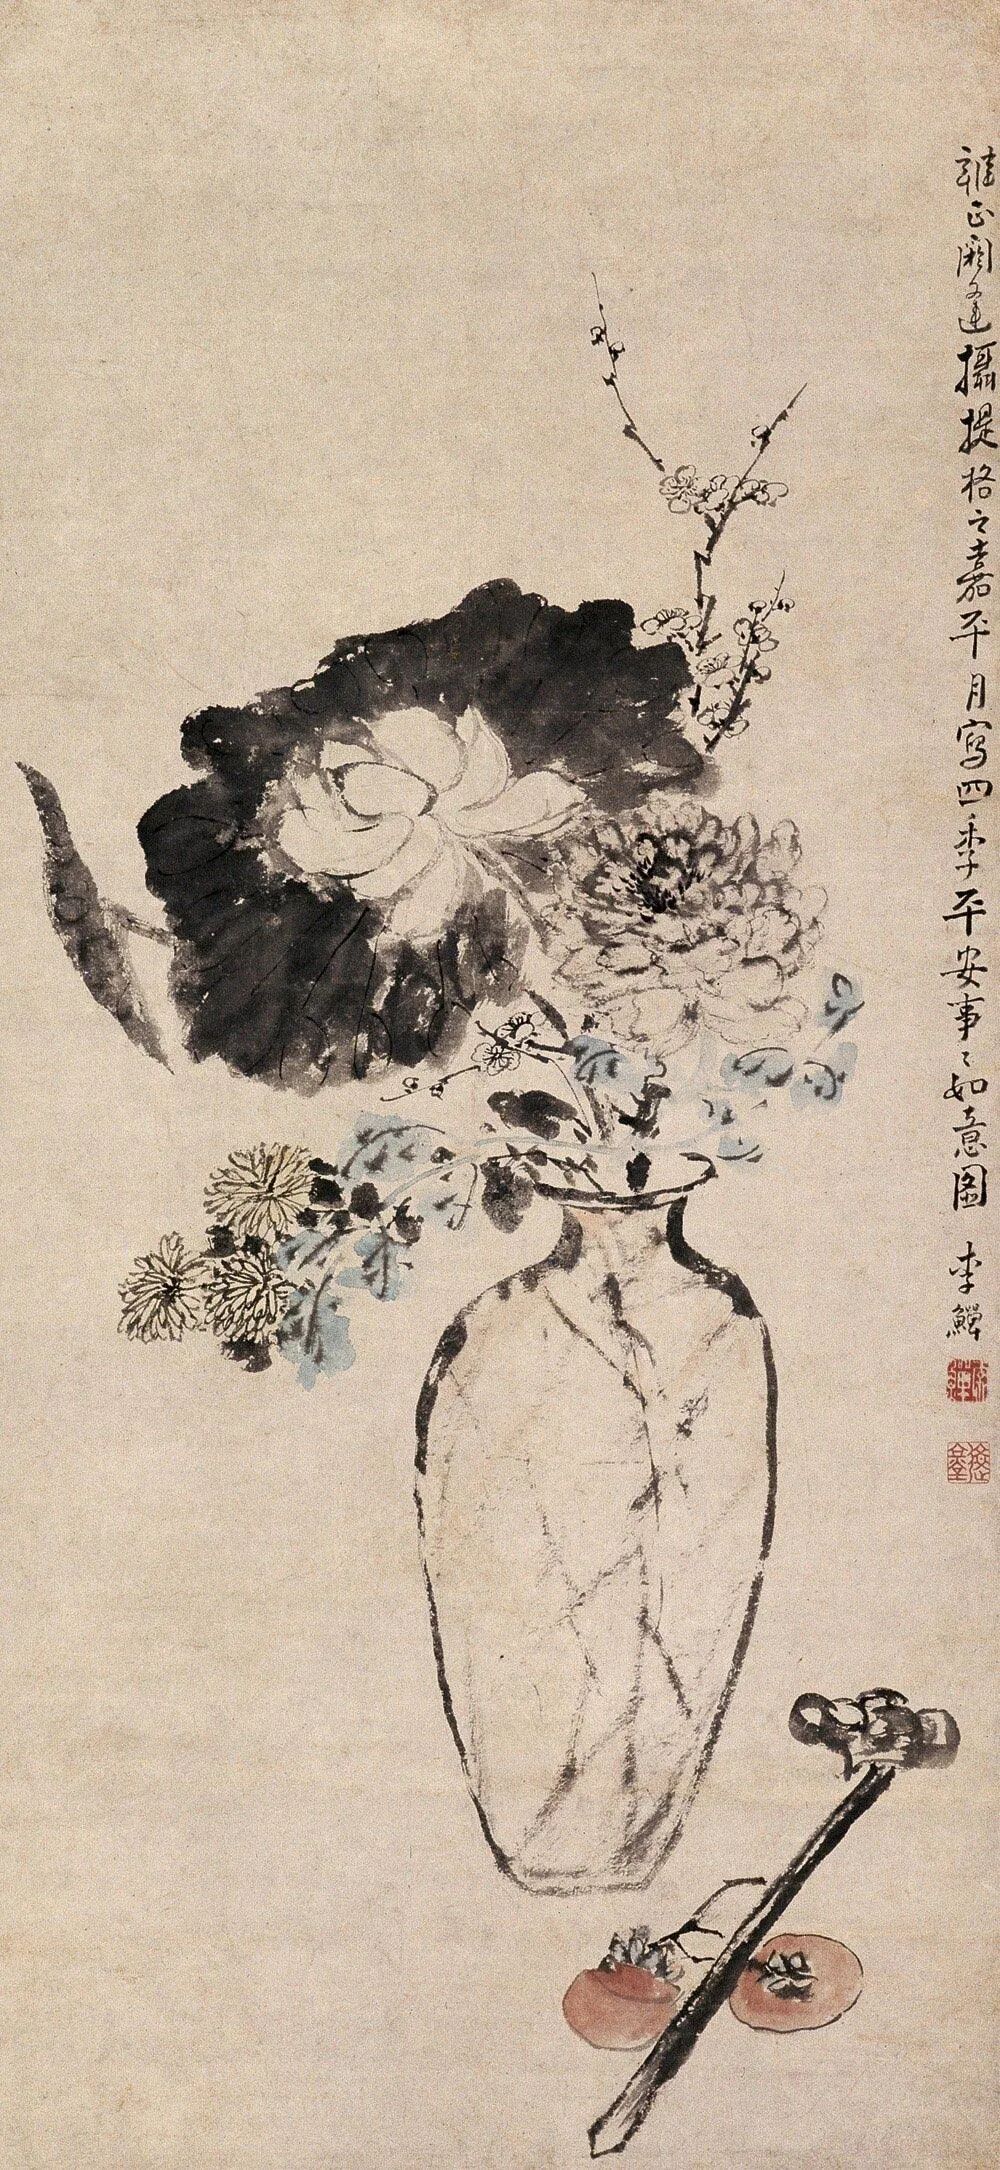 雍正閼逢攝提格之嘉平月寫四季平安事〻如意圖 李鱓